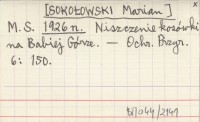 [SOKOŁOWSKI Marian] x
M. S. 1926 n. Niszczenie kosówki
na Babiej Górze. — Ochr. Przyr.
6: 150.